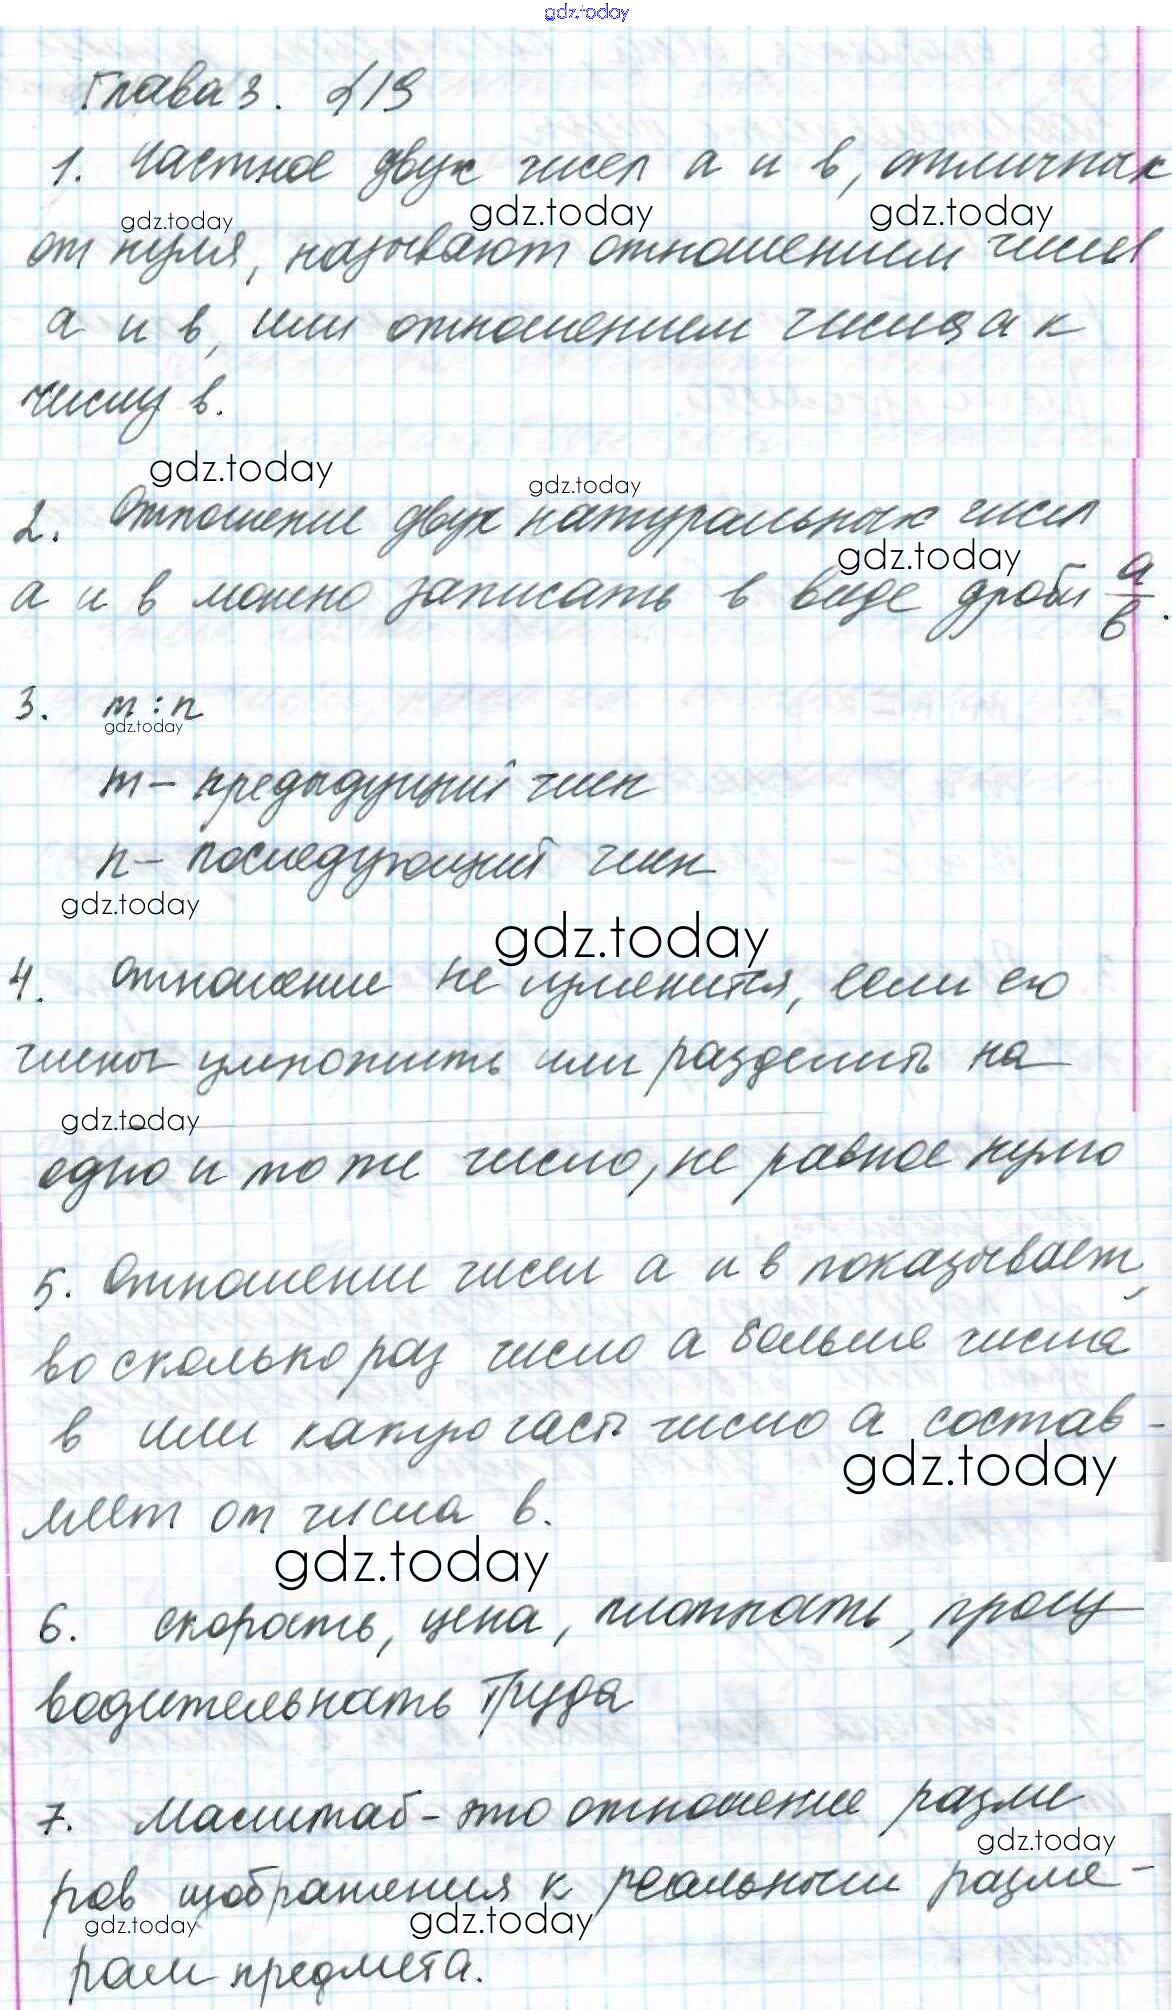 gdz.today
Глава 3. §19
1. Частное двух чисел а и в, отличных
gdz.today gdz.today gdz.today
от нуля, называют отношением чисел
а и в, или отношением числа а к
числу в.
gdz.today gdz.today
2. Отношение двух натуральных чисел
gdz.today
а и в можно записать в виде дроби а/в.
3. m : n
gdz.today
m – предыдущий член
n – последующий член
gdz.today gdz.today
4. Отношение не изменится, если его
члены умножить или разделить на
gdz.today
одно и то же число, не равное нулю
5. Отношение чисел а и в показывает,
во сколько раз число а больше числа
в или какую часть число а состав-
gdz.today
ляет от числа в.
gdz.today
6. скорость, цена, плотность, произ
водительность труда
7. Масштаб – это отношение разме
gdz.today
ров изображения к реальным разме-
gdz.today gdz.today
рам предмета.